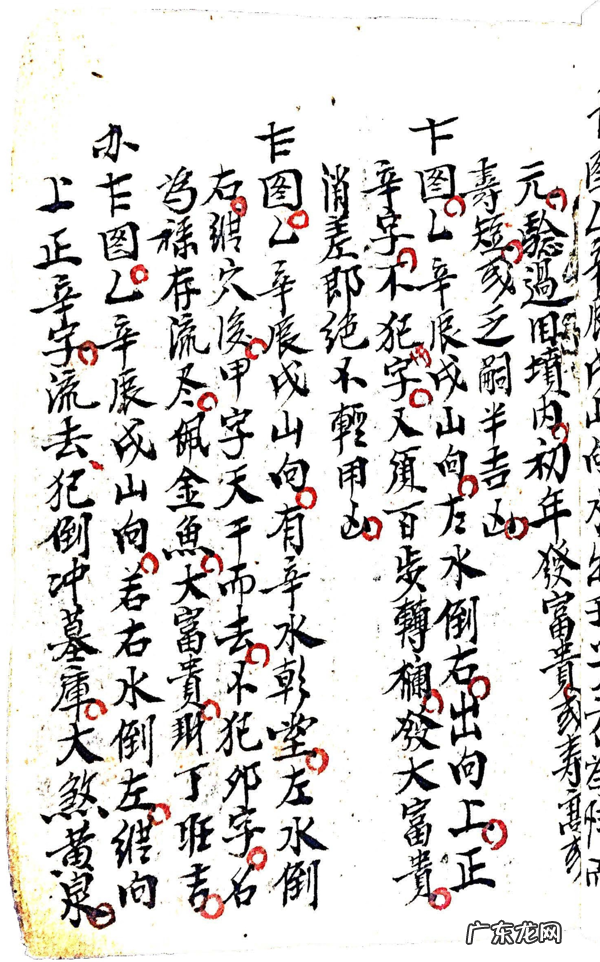 元驗過旧墳内初年發富貴或寿高或
寿短或乏嗣半吉凶
卞图乙辛辰戌山向左水倒右出向上正
辛字不犯字又須百步轉欄發大富貴
消差即绝不輕用凶
乍图乙辛辰戌山向有辛水朝堂左水倒
右從穴後甲字天干而去不犯卯字名
為禄存流尽佩金魚大富貴財丁旺吉
办乍图乙辛辰戌山向若右水倒左從向
上正辛字流去犯倒冲墓庫大煞黄泉
广东龙网